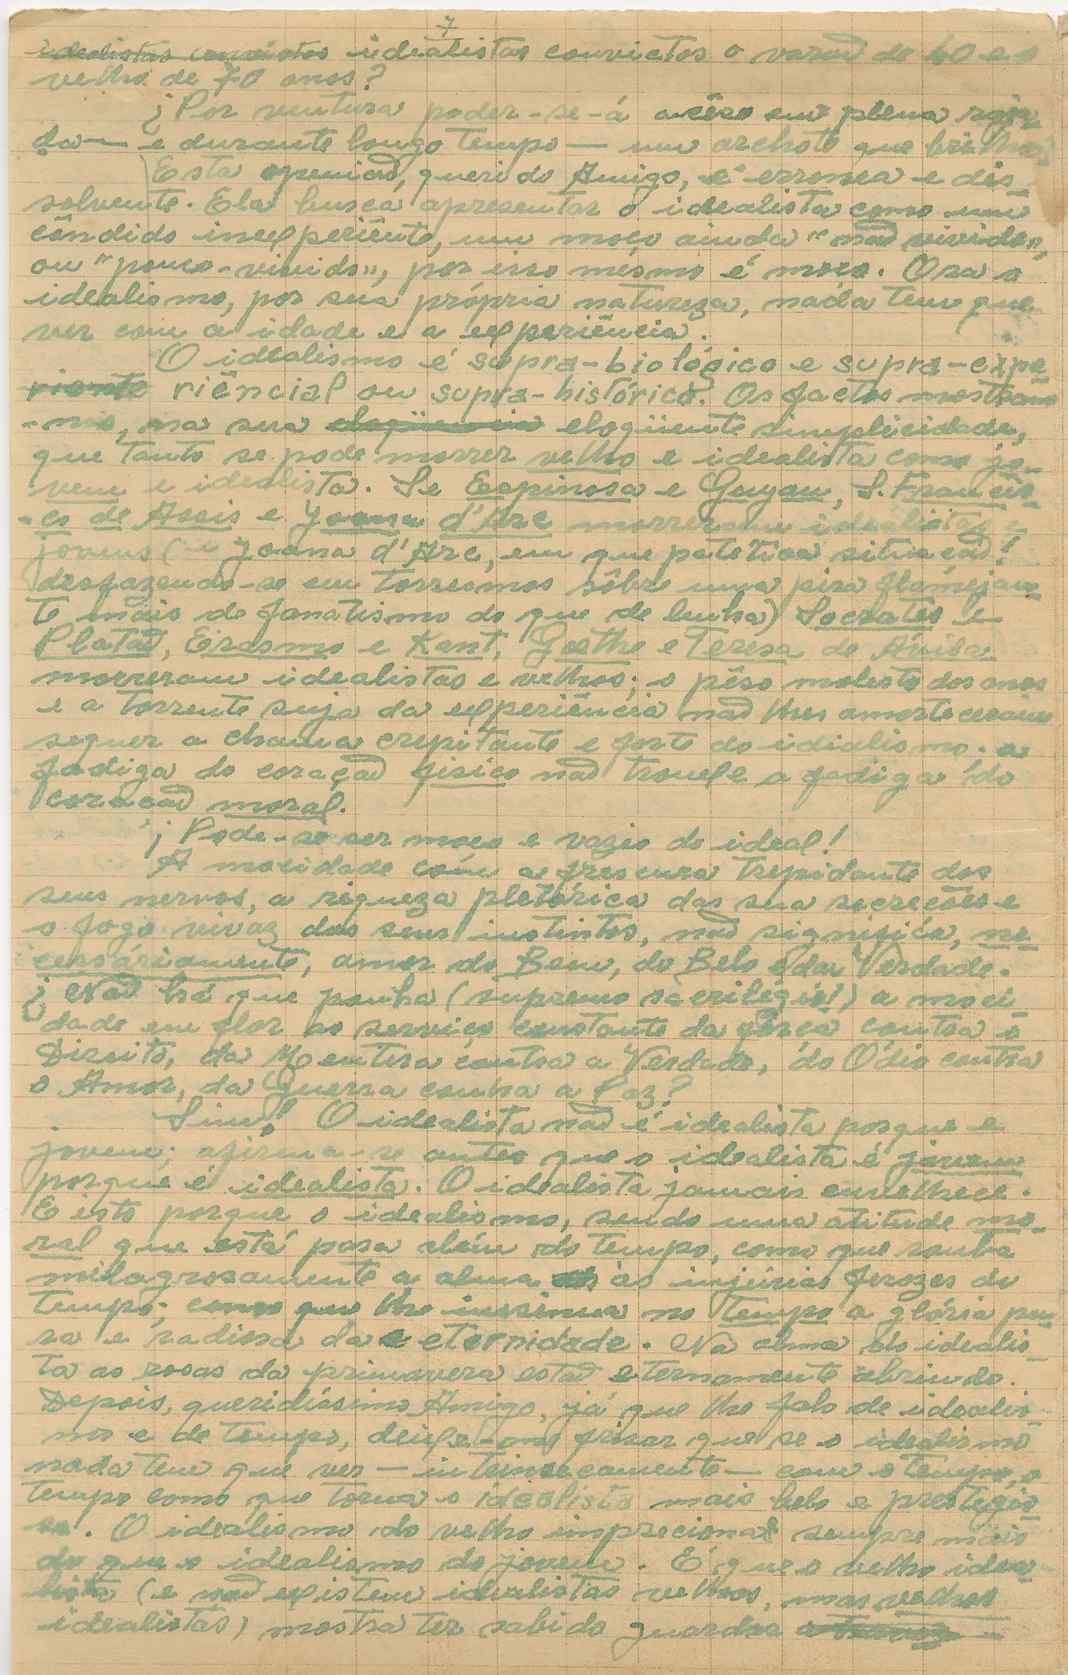 7
idealistas convictos idealistas convictos o varão de 40 e o
velho de 70 anos?
¿Por ventura poder-se-á acêso em plena
da — e durante longo tempo — um archote que brilhas
Esta opinião, querido Amigo, é erronea e dis-
solvente. Ela busca apresentar o idealista como um
cândido inexperiênte, um moço ainda "não vivido",
ou "pouco-vivido", por isso mesmo é moço. Ora o
idealismo, por sua própria natureza, nada tem que
ver com a idade e a experiência.
O idealismo é supra-biológico e supra-expe-
riente riêncial ou supra-histórico. Os factos mostram
-nos, na sua eloqüencia eloqüente simplicidade,
que tanto se pode morrer velho e idealista como jo-
vem e idealista. Se Espinosa e Guyau, S. Francis-
-co de Assis e Joana d'Arc morreram idealistas e
jovens (e Joana d'Arc, em que patetica situação!
desfazendo-se em torresmos sôbre uma pira flamejan-
te mais de fanatismo do que de lenha) Socrates e
Platão, Erasmo e Kant, Goethe e Teresa de Ávila
morreram idealistas e velhos; o pêso molesto dos anos
e a torrente suja da experiência não lhes amorteceram
sequer a chama crepitante e forte do idialismo. a
fadiga do coração fisico não trouxe a fadiga do
coração moral.
¡Pode-se ser moço e vazio do ideal!
A mocidade com a frescura trepidante dos
seus nervos, a riqueza pletórica das sua secreções e
o fogo vivaz dos seus instintos, não significa, ne-
cessáriamente, amor do Bem, do Belo e da Verdade.
¿Não há que ponha (supremo sacrilégio!) a moci
dade em flor ao serviço constante da fôrça contra o
Direito, da Mentira contra a Verdade, do Ódio contra
o Amor, da Guerra contra a Paz?
Sim! O idealista não é idealista porque é
jovem; afirma-se antes que o idealista é jovem
porque é idealista. O idealista jamais envelhece.
E isto porque o idealismo, sendo uma atitude mo-
ral que está para além do tempo, como que rouba
milagrosamente a alma às injúrias ferozes do
tempo; como que lhe insinua no tempo a glória pu-
ra e radiosa da eternidade. Na alma do idealis-
ta as rosas da primavera estão eternamente abrindo.
Depois, queridíssimo Amigo, já que lhe falo de idealis
mo e de tempo, deixe-me frisar que se o idealismo
nada tem que ver — intrinsecamente — com o tempo, o
tempo como que torna o idealista mais belo e prestigio
so. O idealismo do velho impreciona sempre mais
do que o idealismo do jovem. É que o velho idea
lista (e não existem idealistas velhos, mas velhos
idealistas) mostra ter sabido guardar